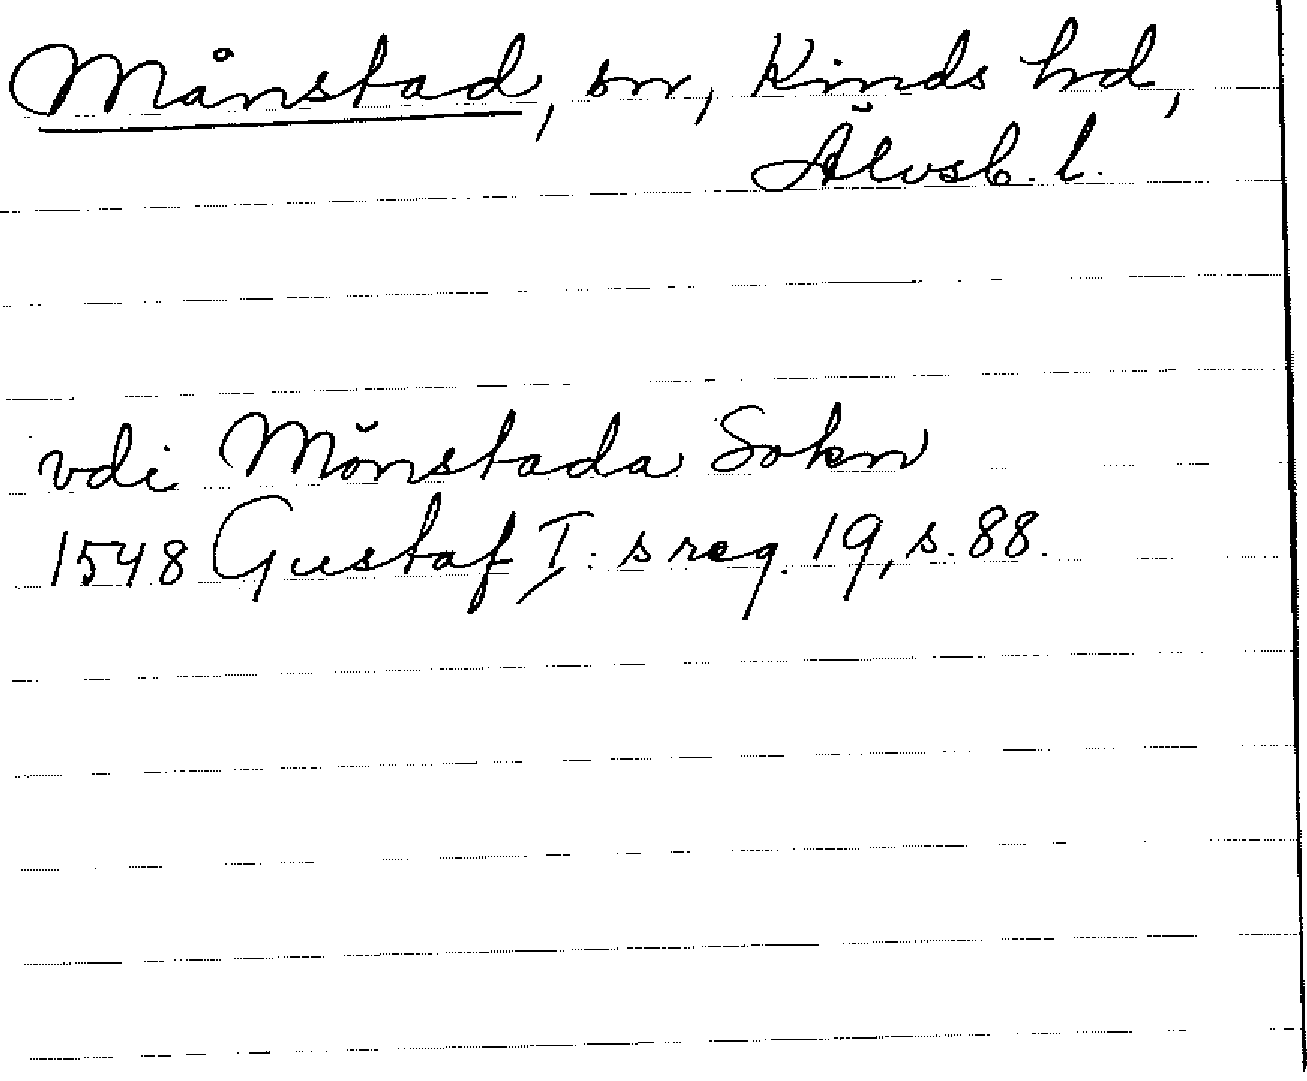 Månstad, sn, Kinds hd,
Älvsb. l.
vdi Mönstada Sokn
1548 Gustaf I:s reg. 19, s. 88.